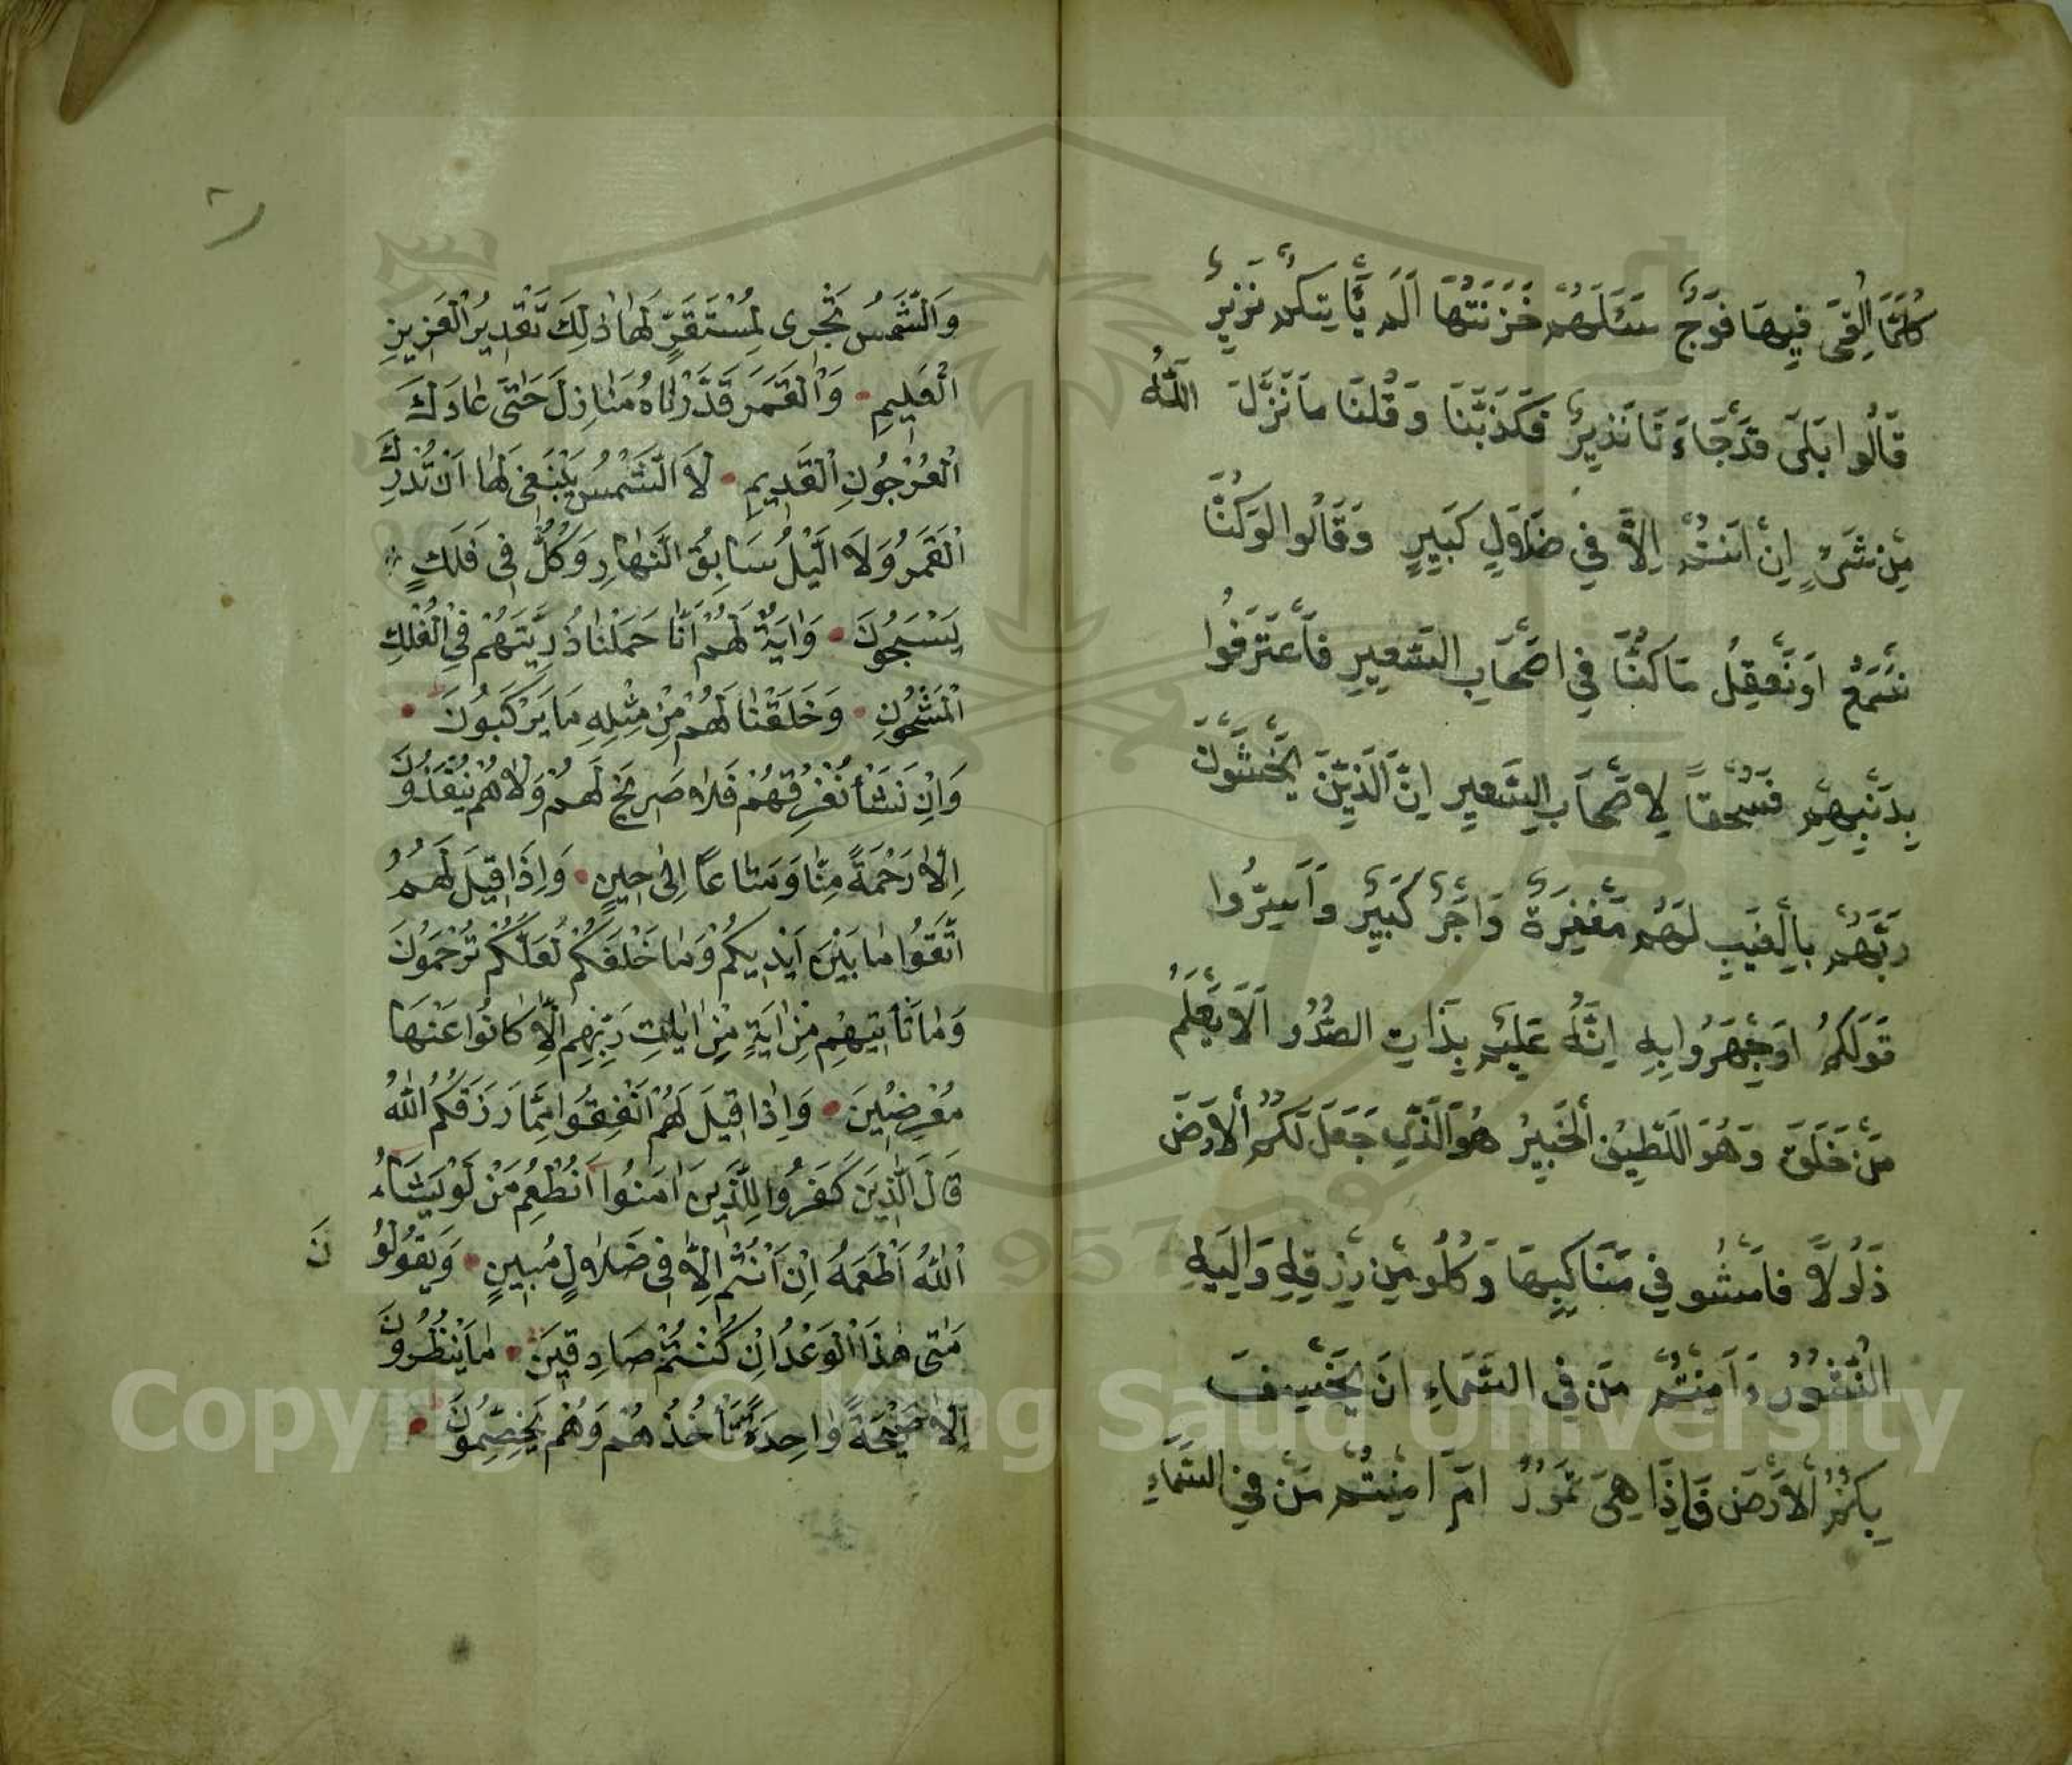 كُلَّمَا اُلْقِىَ فِيهَا فَوْجٌ سَئَلَهُمْ خَزَنَتُهَا اَلَمْ يَأْتِيكُمْ نَزِيرٌ
قَالُوا بَلَى قَدْ جَاءَ نَا نَذِيرٌ فَكَذَّبْنَا وَقُلْنَا مَا نَزَّلَ اللّٰهُ
مِنْ شَىْءٍ اِنْ اَنْتُمْ اِلَّا فِي ضَلَالٍ كَبِيرٍ وَقَالُوا لَوْ كُنَّا
نَسْمَعُ اَوْ نَعْقِلُ مَا كُنَّا فِي اَصْحَابِ السَّعِيرِ فَاعْتَرَفُوا
بِذَنْبِهِمْ فَسُحْقًا لِاَصْحَابِ السَّعِيرِ اِنَّ الَّذِينَ يَخْشَوْنَ
رَبَّهُمْ بِالْغَيْبِ لَهُمْ مَغْفِرَةٌ وَاَجْرٌ كَبِيرٌ وَاَسِرُّوا
قَوْلَكُمْ اَوِجْهَرُوا بِهِ اِنَّهُ عَلِيمٌ بِذَاتِ الصُّدُو اَلَا يَعْلَمُ
مَنْ خَلَقَ وَهُوَ اللَّطِيفُ الْخَبِيرُ هُوَ الَّذِي جَعَلَ لَكُمُ الْاَرْضَ
ذَلُولًا فَامْشُو فِي مَنَاكِبِهَا وَكُلُو مِنْ رِزْقِهِ وَاِلَيْهِ
النُّشُورُ ءَاَمِنْتُمْ مَنْ فِي السَّمَاءِ اَنْ يَخْسِفَ
بِكُمُ الْاَرْضَ فَاِذَا هِيَ تَمُورُ اَمْ اَمِنْتُمْ مَنْ فِي السَّمَاءِ
٨
وَالشَّمْسُ تَجْرِى لِمُسْتَقَرٍّ لَهَا ذٰلِكَ تَقْدِيرُ الْعَزِيزِ
الْعَلِيمِ • وَالْقَمَرَ قَدَّرْنَاهُ مَنَازِلَ حَتّٰى عَادَ كَ
الْعُرْجُونِ الْقَدِيمِ • لَا الشَّمْسُ يَنْبَغِى لَهَا اَنْ تُدْرِكَ
الْقَمَرَ وَلَا الَّيْلُ سَابِقُ النَّهَارِ وَكُلٌّ فِى فَلَكٍ
يَسْبَحُونَ • وَاٰيَةٌ لَهُمْ اَنَّا حَمَلْنَا ذُرِّيَّتَهُمْ فِى الْفُلْكِ
الْمَشْحُونِ • وَخَلَقْنَا لَهُمْ مِنْ مِثْلِهِ مَا يَرْكَبُونَ •
وَاِنْ نَشَأْ نُغْرِقْهُمْ فَلَا صَرِيخَ لَهُمْ وَلَا هُمْ يُنْقَذُونَ
اِلَّا رَحْمَةً مِنَّا وَمَتَاعًا اِلٰى حِينٍ • وَاِذَا قِيلَ لَهُمُ
اتَّقُوا مَا بَيْنَ اَيْدِيكُمْ وَمَا خَلْفَكُمْ لَعَلَّكُمْ تُرْحَمُونَ
وَمَا تَأْتِيهِمْ مِنْ اٰيَةٍ مِنْ اٰيَاتِ رَبِّهِمْ اِلَّا كَانُوا عَنْهَا
مُعْرِضِينَ • وَاِذَا قِيلَ لَهُمْ اَنْفِقُوا مِمَّا رَزَقَكُمُ اللّٰهُ
قَالَ الَّذِينَ كَفَرُوا لِلَّذِينَ اٰمَنُوا اَنُطْعِمُ مَنْ لَوْ يَشَاءُ
اللّٰهُ اَطْعَمَهُ اِنْ اَنْتُمْ اِلَّا فِى ضَلَالٍ مُبِينٍ • وَيَقُولُو نَ
مَتٰى هٰذَا الْوَعْدُ اِنْ كُنْتُمْ صَادِقِينَ • مَا يَنْظُرُونَ
اِلَّا صَيْحَةً وَاحِدَةً تَأْخُذُهُمْ وَهُمْ يَخِصِّمُونَ •
Copyright © King Saud University
1957